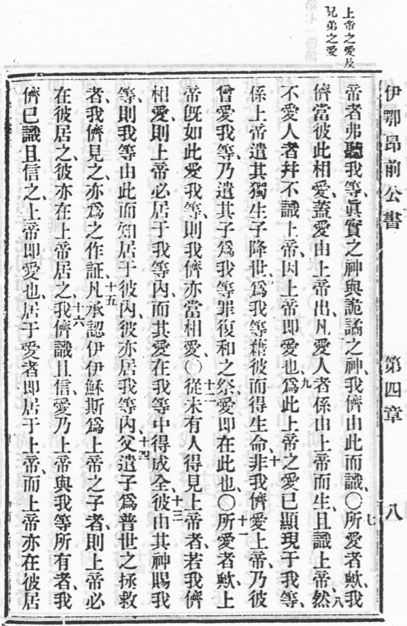 上帝之愛及
兄弟之愛
伊鄂昻前公書 第四章 八
帝者弗聽我等、眞實之神與詭譎之神、我儕由此而識、〇七所愛者歟、我
儕當彼此相愛、蓋愛由上帝出、凡愛人者係由上帝而生、且識上帝、八然
不愛人者、幷不識上帝、因上帝即愛也、九爲此上帝之愛已顯現于我等、
係上帝遣其獨生子降世、爲我等藉彼而得生命、十非我儕愛上帝、乃彼
曾愛我等、乃遣其子爲我等罪復和之祭、愛即在此也、〇十一所愛者歟、上
帝旣如此愛我等、則我儕亦當相愛、〇十二從來有人得見上帝者、若我儕
相愛、則上帝必居于我等內、而其愛在我等中得成全、十三彼由其神賜我
等、則我等由此而知居于彼內、彼亦居我等內、十四父遣子爲普世之拯救
者、我儕見之、亦爲之作証、十五凡承認伊伊穌斯爲上帝之子者、則上帝必
在彼居之、彼亦在上帝居之、十六我儕識且信愛乃上帝與我等所有者、我
儕已識且信之、上帝即愛也、居于愛者即居于上帝、而上帝亦在彼居